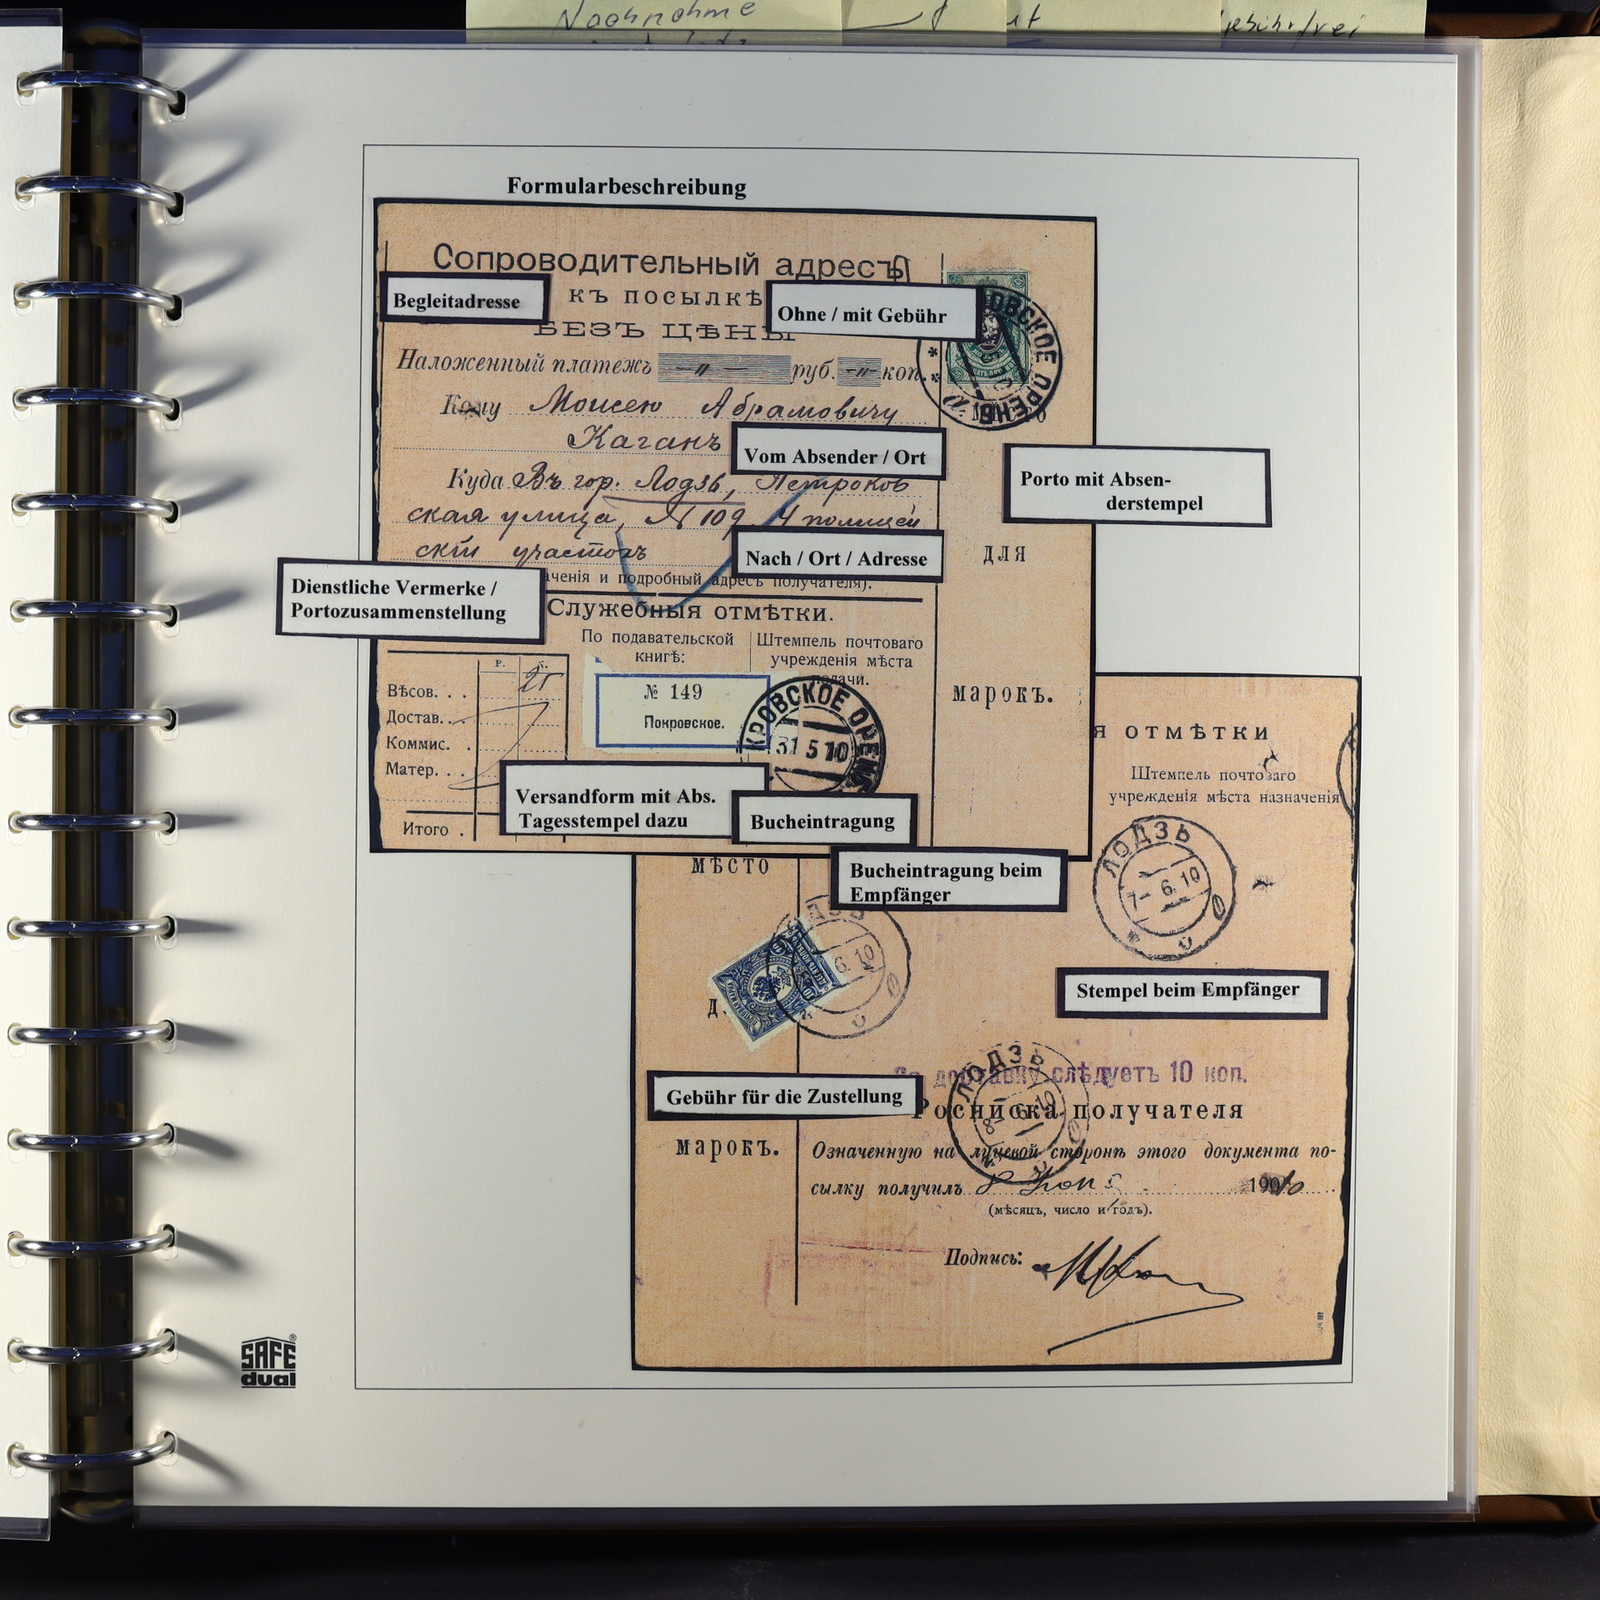 Nachnahme
gebührfrei
Formularbeschreibung
Сопроводительный адресъ
Begleitadresse
къ посылкѣ
Ohne / mit Gebühr
БЕЗЪ ЦѢНЫ
Наложенный платежъ руб. коп.
Кому Моисею Абрамовичу
Каганъ
Vom Absender / Ort
Куда Въ гор. Лодзь, Петроков
ская улица, № 109, 4 полицей
скій участокъ
Nach / Ort / Adresse
Porto mit Absen-
derstempel
для
марокъ.
подробный адресъ получателя).
Dienstliche Vermerke /
Portozusammenstellung
Служебныя отмѣтки.
По подавательской
книгѣ:
Штемпель почтоваго
учрежденія мѣста
подачи.
Р. К.
Вѣсов. . . 25
Достав. . .
Коммис. .
Матер. . .
Итого .
№ 149
Покровское.
КРОВСКОЕ ОРЕНБ
31 5 10
Versandform mit Abs.
Tagesstempel dazu
Bucheintragung
Bucheintragung beim
Empfänger
я отмѣтки
Штемпель почтоваго
учрежденія мѣста назначенія
ЛОДЗЬ
7- 6 10
мѣсто
6 10
Stempel beim Empfänger
За доставку слѣдуетъ 10 коп.
ЛОДЗЬ
Gebühr für die Zustellung
Росписка получателя
марокъ.
Означенную на лицевой сторонѣ этого документа по-
сылку получилъ 8 Іюня 1910
(мѣсяцъ, число и годъ).
Подпись:
SAFE
dual